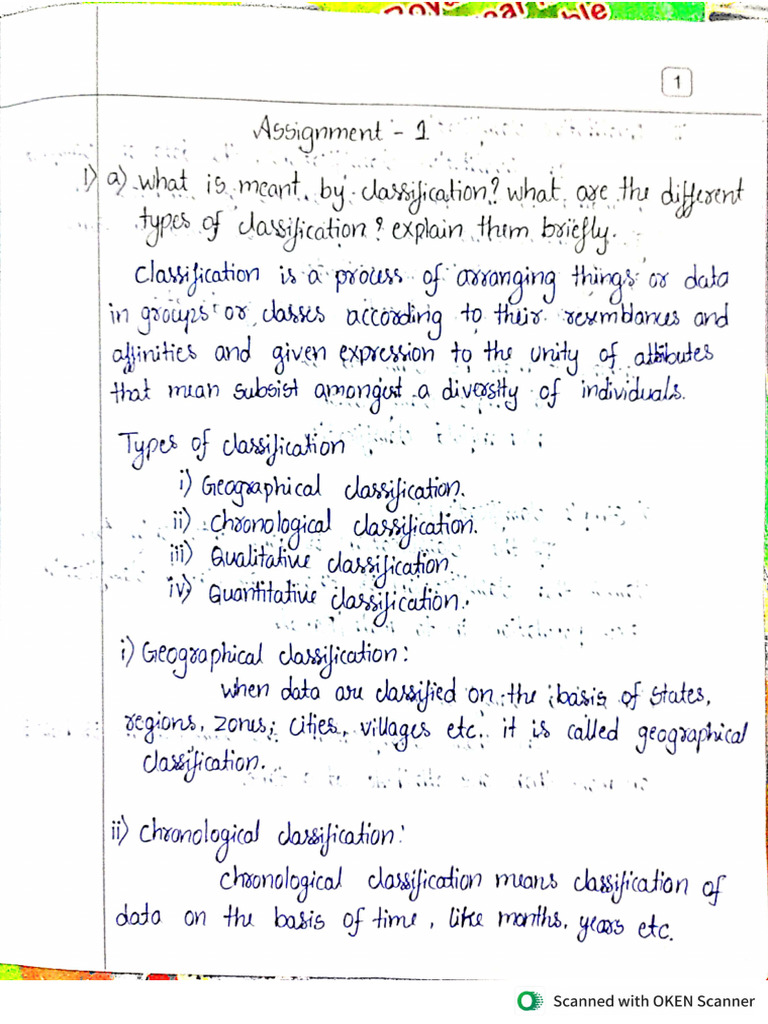 1
Assignment - 1
1) a) what is meant by classification? what are the different
types of classification? explain them briefly.
classification is a process of arranging things or data
in groups or classes according to their resemblances and
affinities and given expression to the unity of attibutes
that mean subsist amongst a diversity of individuals.
Types of classification
i) Geographical classification.
ii) Chronological classification.
iii) Qualitative classification.
iv) Quantitative classification.
i) Geographical classification:
when data are classified on the basis of states,
regions, zones, cities, villages etc. it is called geographical
classification.
ii) chronological classification:
chronological classification means classification of
data on the basis of time, like months, years etc.
Scanned with OKEN Scanner